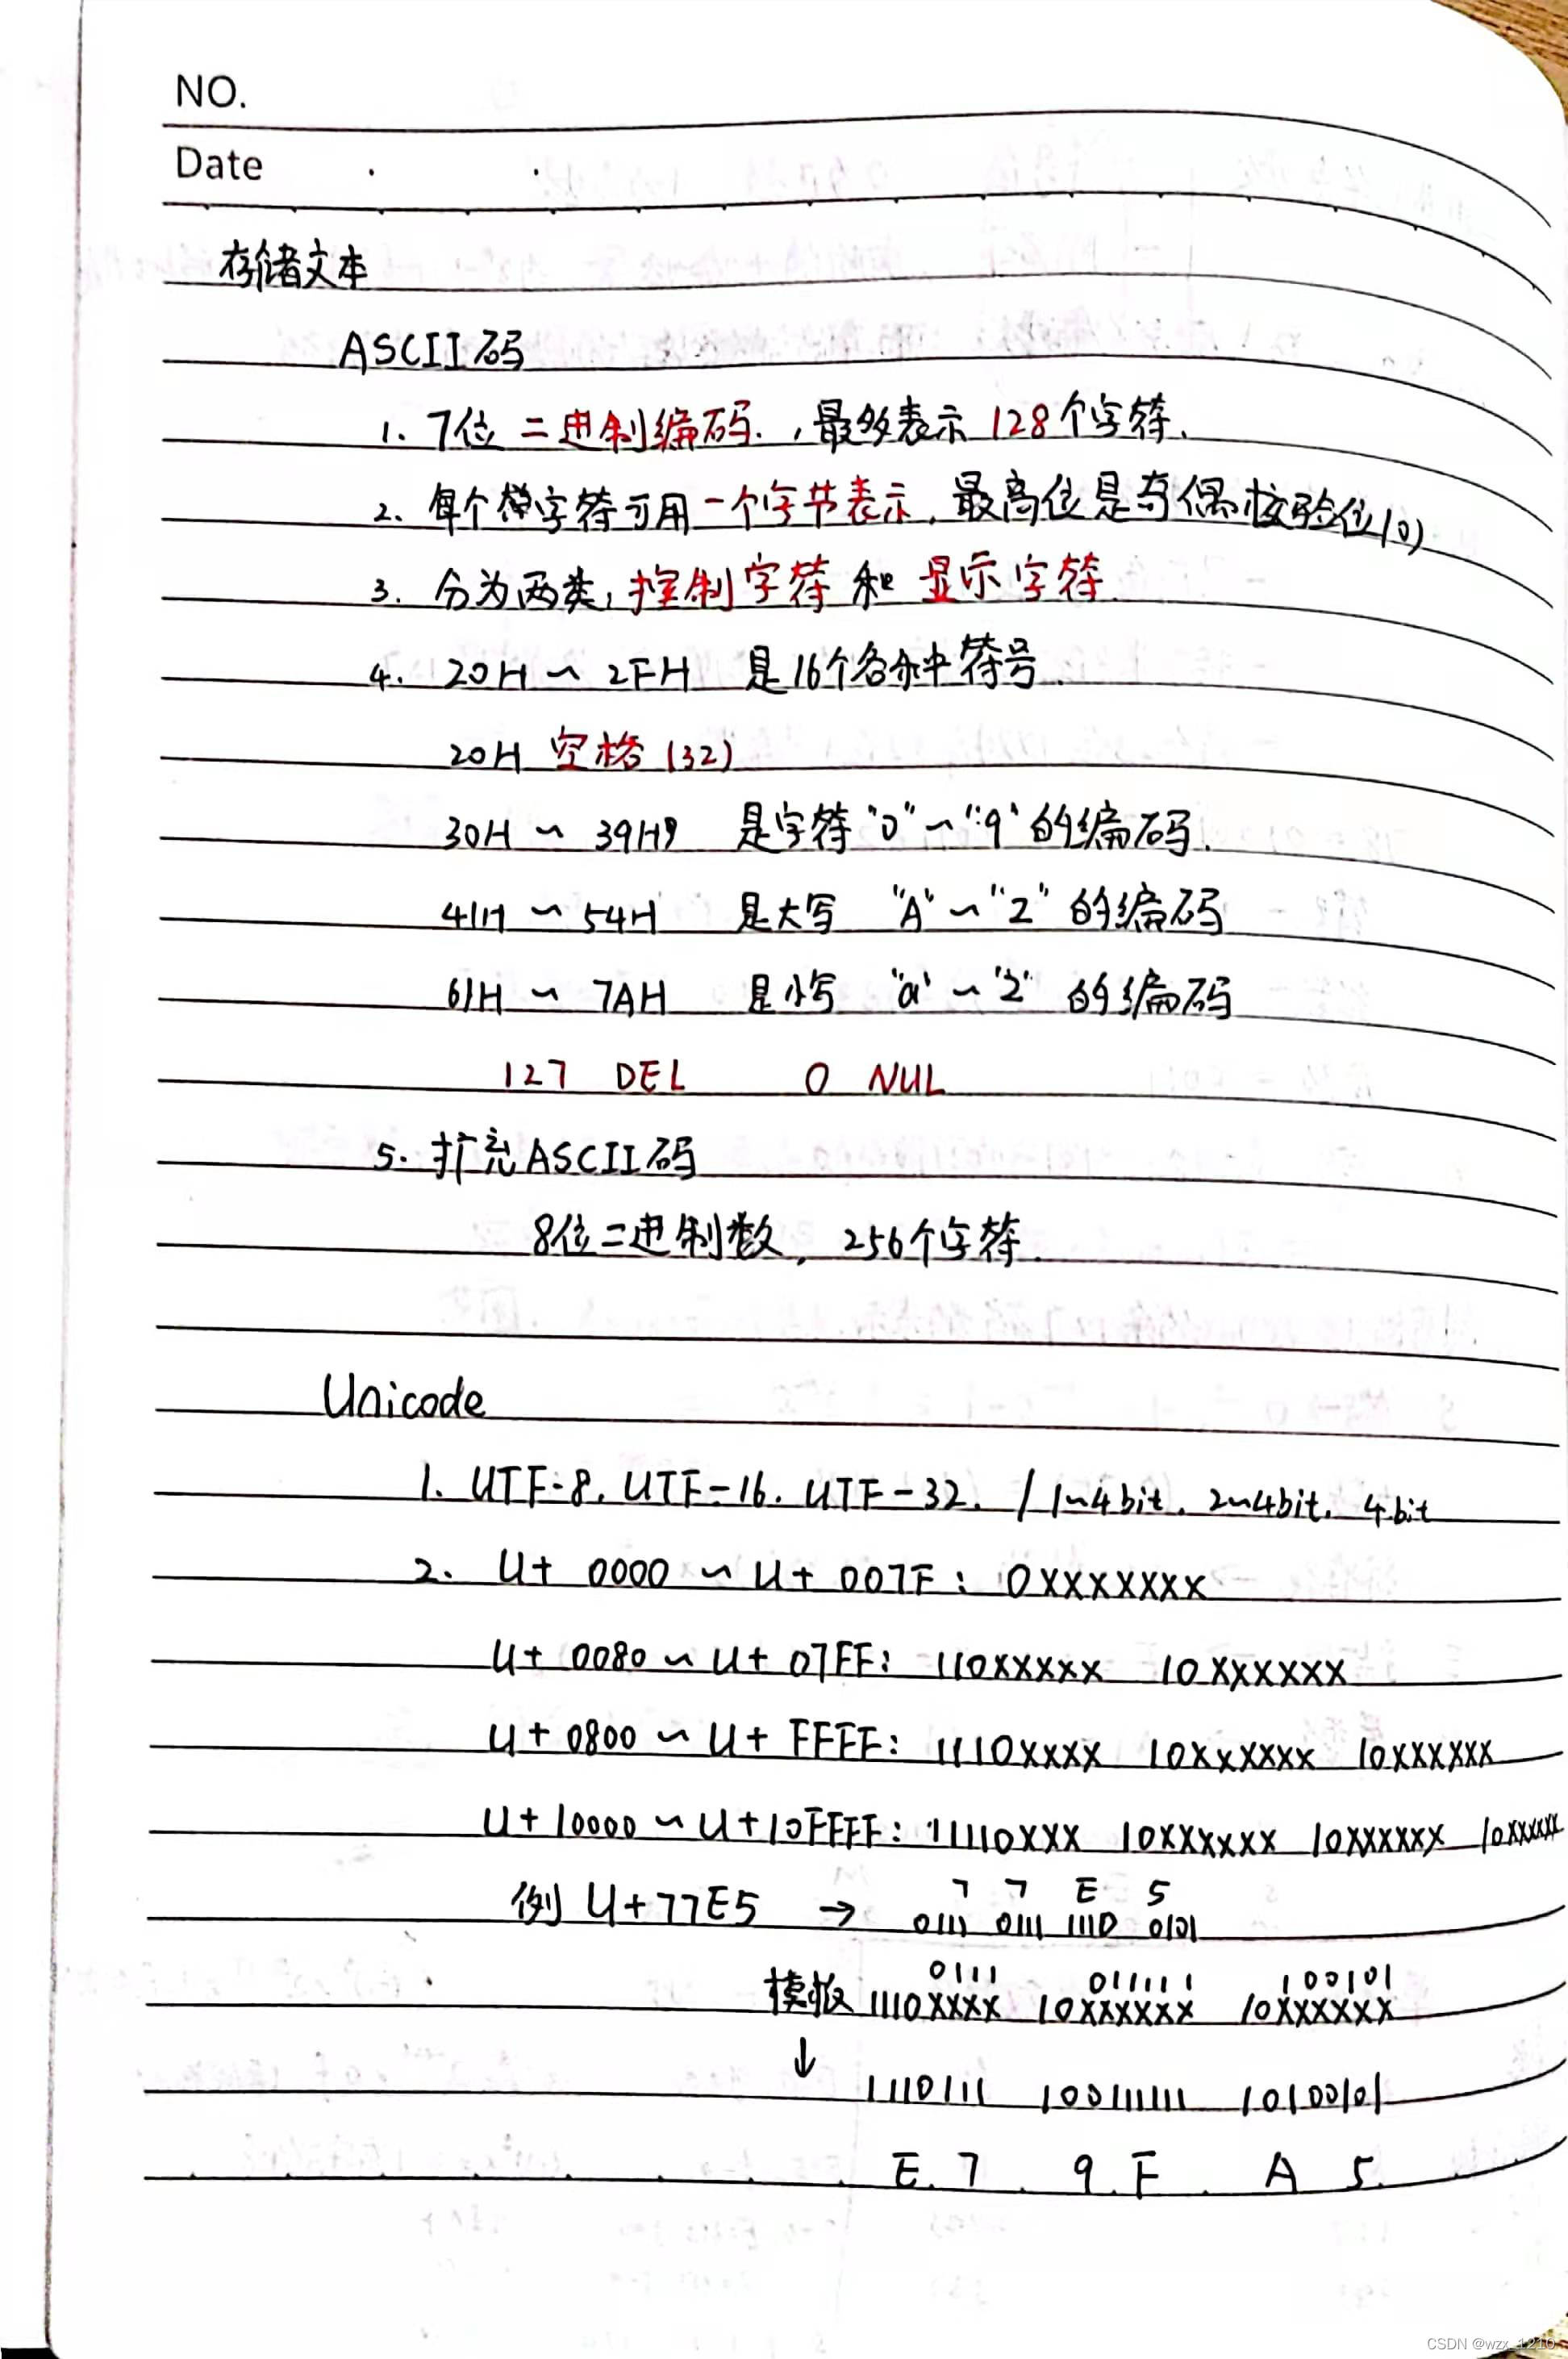 NO.
Date
存储文本
ASCII码
1. 7位二进制编码.,最多表示128个字符.
2. 每个字符可用一个字节表示,最高位是奇偶校验位(0)
3. 分为两类,控制字符和显示字符.
4. 20H ~ 2FH 是16个各种符号.
20H 空格(32)
30H ~ 39H 是字符"0"~"9"的编码.
41H ~ 54H 是大写 "A"~"Z" 的编码
61H ~ 7AH 是小写 "a"~"z" 的编码
127 DEL 0 NUL
5. 扩充ASCII码
8位二进制数, 256个字符.
Unicode
1. UTF-8. UTF-16. UTF-32. / 1~4bit. 2~4bit. 4bit
2. U+ 0000 ~ U+ 007F: 0XXXXXXX
U+ 0080 ~ U+ 07FF: 110XXXXX 10XXXXXX
U+ 0800 ~ U+ FFFF: 1110XXXX 10XXXXXX 10XXXXXX
U+10000 ~ U+10FFFF: 11110XXX 10XXXXXX 10XXXXXX 10XXXXXX
7 7 E 5
例 U+77E5 → 0111 0111 1110 0101
0111 011111 100101
模板 1110XXXX 10XXXXXX 10XXXXXX
↓ 1110111 10011111 10100101
E 7 9 F A 5
CSDN @wzx_1210